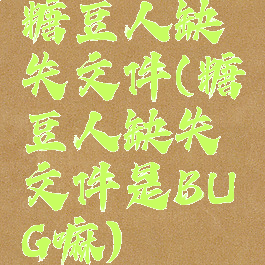 糖豆人缺
失文件(糖
豆人缺失
文件是BU
G嘛)